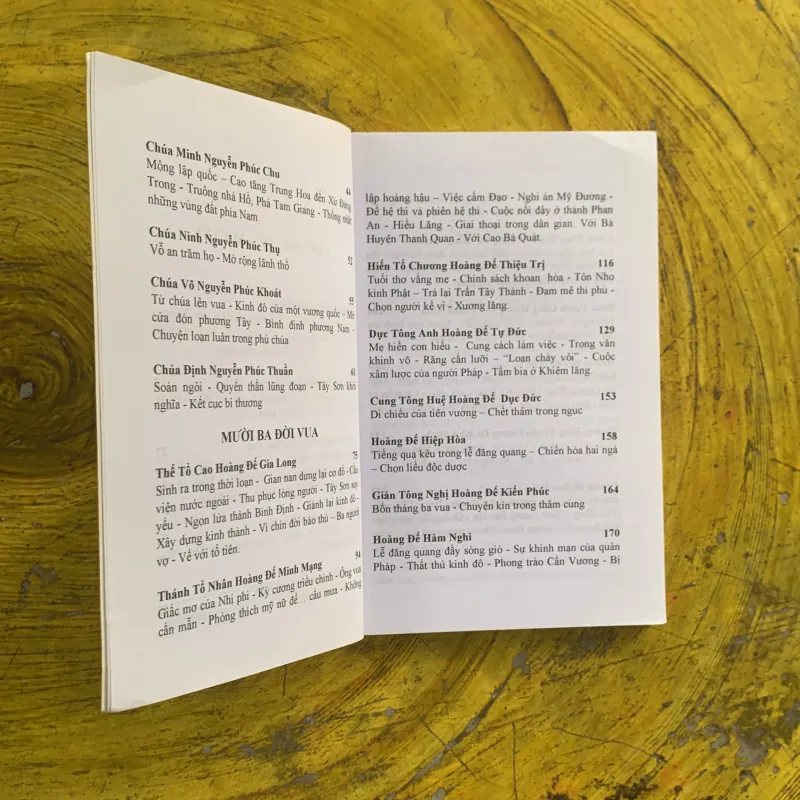 Chúa Minh Nguyễn Phúc Chu
44
Mộng lập quốc – Cao tăng Trung Hoa đến Xứ Đàng
Trong - Truông nhà Hồ, Phá Tam Giang - Thống nhất
những vùng đất phía Nam
Chúa Ninh Nguyễn Phúc Thụ
52
Vỗ an trăm họ - Mở rộng lãnh thổ
Chúa Võ Nguyễn Phúc Khoát
55
Từ chúa lên vua - Kinh đô của một vương quốc - Mở
cửa đón phương Tây - Bình định phương Nam -
Chuyện loạn luân trong phủ chúa
Chúa Định Nguyễn Phúc Thuần
61
Soán ngôi - Quyền thần lũng đoạn - Tây Sơn khởi
nghĩa - Kết cục bi thương
MƯỜI BA ĐỜI VUA
Thế Tổ Cao Hoàng Đế Gia Long
75
Sinh ra trong thời loạn - Gian nan dựng lại cơ đồ - Cầu
viện nước ngoài - Thu phục lòng người - Tây Sơn suy
yếu - Ngọn lửa thành Bình Định - Giành lại kinh đô -
Xây dựng kinh thành - Vì chín đời báo thù – Ba người
vợ - Về với tổ tiên.
Thánh Tổ Nhân Hoàng Đế Minh Mạng
94
Giấc mơ của Nhị phi - Kỷ cương triều chính - Ông vua
cần mẫn - Phóng thích mỹ nữ để… cầu mưa - Không
lập hoàng hậu – Việc cấm Đạo - Nghi án Mỹ Đường -
Đế hệ thi và phiên hệ thi - Cuộc nổi dậy ở thành Phan
An - Hiếu Lăng - Giai thoại trong dân gian. Với Bà
Huyện Thanh Quan - Với Cao Bá Quát.
Hiến Tổ Chương Hoàng Đế Thiệu Trị 116
Tuổi thơ vắng mẹ - Chính sách khoan hòa - Tôn Nho
kính Phật – Trả lại Trấn Tây Thành - Đam mê thi phú -
Chọn người kế vị - Xương lăng.
Dực Tông Anh Hoàng Đế Tự Đức 129
Mẹ hiền con hiếu - Cung cách làm việc - Trọng văn
khinh võ - Răng cắn lưỡi – “Loạn chày vôi” - Cuộc
xâm lược của người Pháp - Tấm bia ở Khiêm lăng.
Cung Tông Huệ Hoàng Đế Dục Đức 153
Di chiếu của tiên vương – Chết thảm trong ngục
Hoàng Đế Hiệp Hòa 158
Tiếng quạ kêu trong lễ đăng quang – Chiến hòa hai ngả
– Chọn liều độc dược
Giản Tông Nghị Hoàng Đế Kiến Phúc 164
Bốn tháng ba vua - Chuyện kín trong thâm cung
Hoàng Đế Hàm Nghi 170
Lễ đăng quang đầy sóng gió - Sự khinh mạn của quân
Pháp - Thất thủ kinh đô - Phong trào Cần Vương - Bị